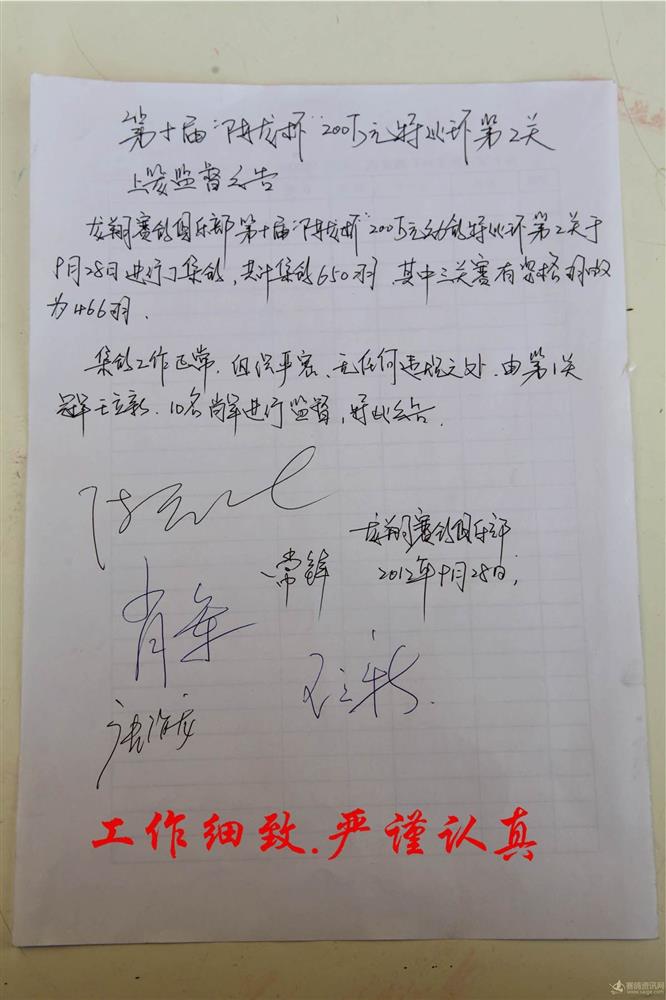 第十届“陆龙杯”200万元特比环第2关
上笼监督公告
龙翔赛鸽俱乐部第十届“陆龙杯”200万元幼鸽特比环第2关于
9月28日进行了集鸽,共计集鸽650羽 其中三关赛有资格羽数
为466羽.
集鸽工作正常.组织严密、无任何违规之处.由第1关
冠军王立新.10名尚军进行监督,特此公告.
龙翔赛鸽俱乐部
常锋 2012年9月28日,
肖军
王立新.
工作细致.严谨认真
赛鸽资讯网